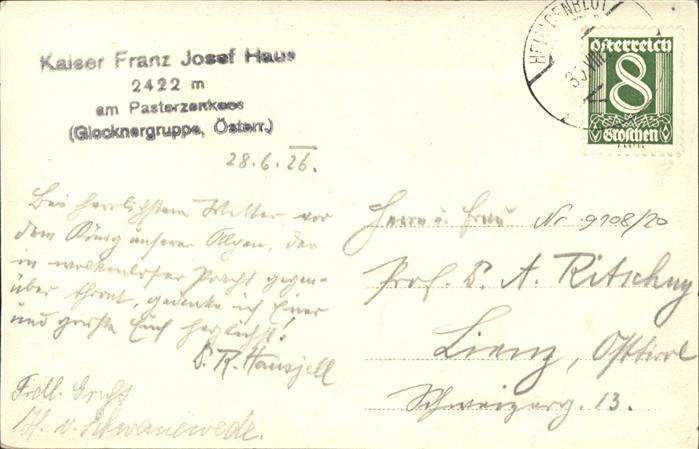 Kaiser Franz Josef Haus
2422 m
am Pasterzenkees
(Glocknergruppe, Österr.)
28.6.26.
Bei herrlichstem Wetter vor
dem König unserer Alpen, der
in wolkenloser Pracht gegen-
über thront, gedenke ich Eurer
und grüße Euch herzlichst!
Frdl. Gruß
v. Schwanewede.
HEILIGENBLUT
Österreich
8
Groschen
Herrn u. Frau
Nr 9108/20
Prof. A.
Lienz, Osttirol
Schweizerg. 13.